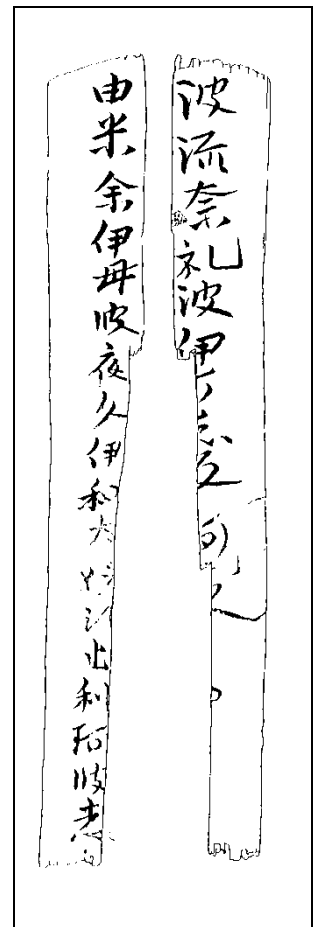 波流奈礼波伊万志
由米余伊母波夜久伊和太止利阿波志